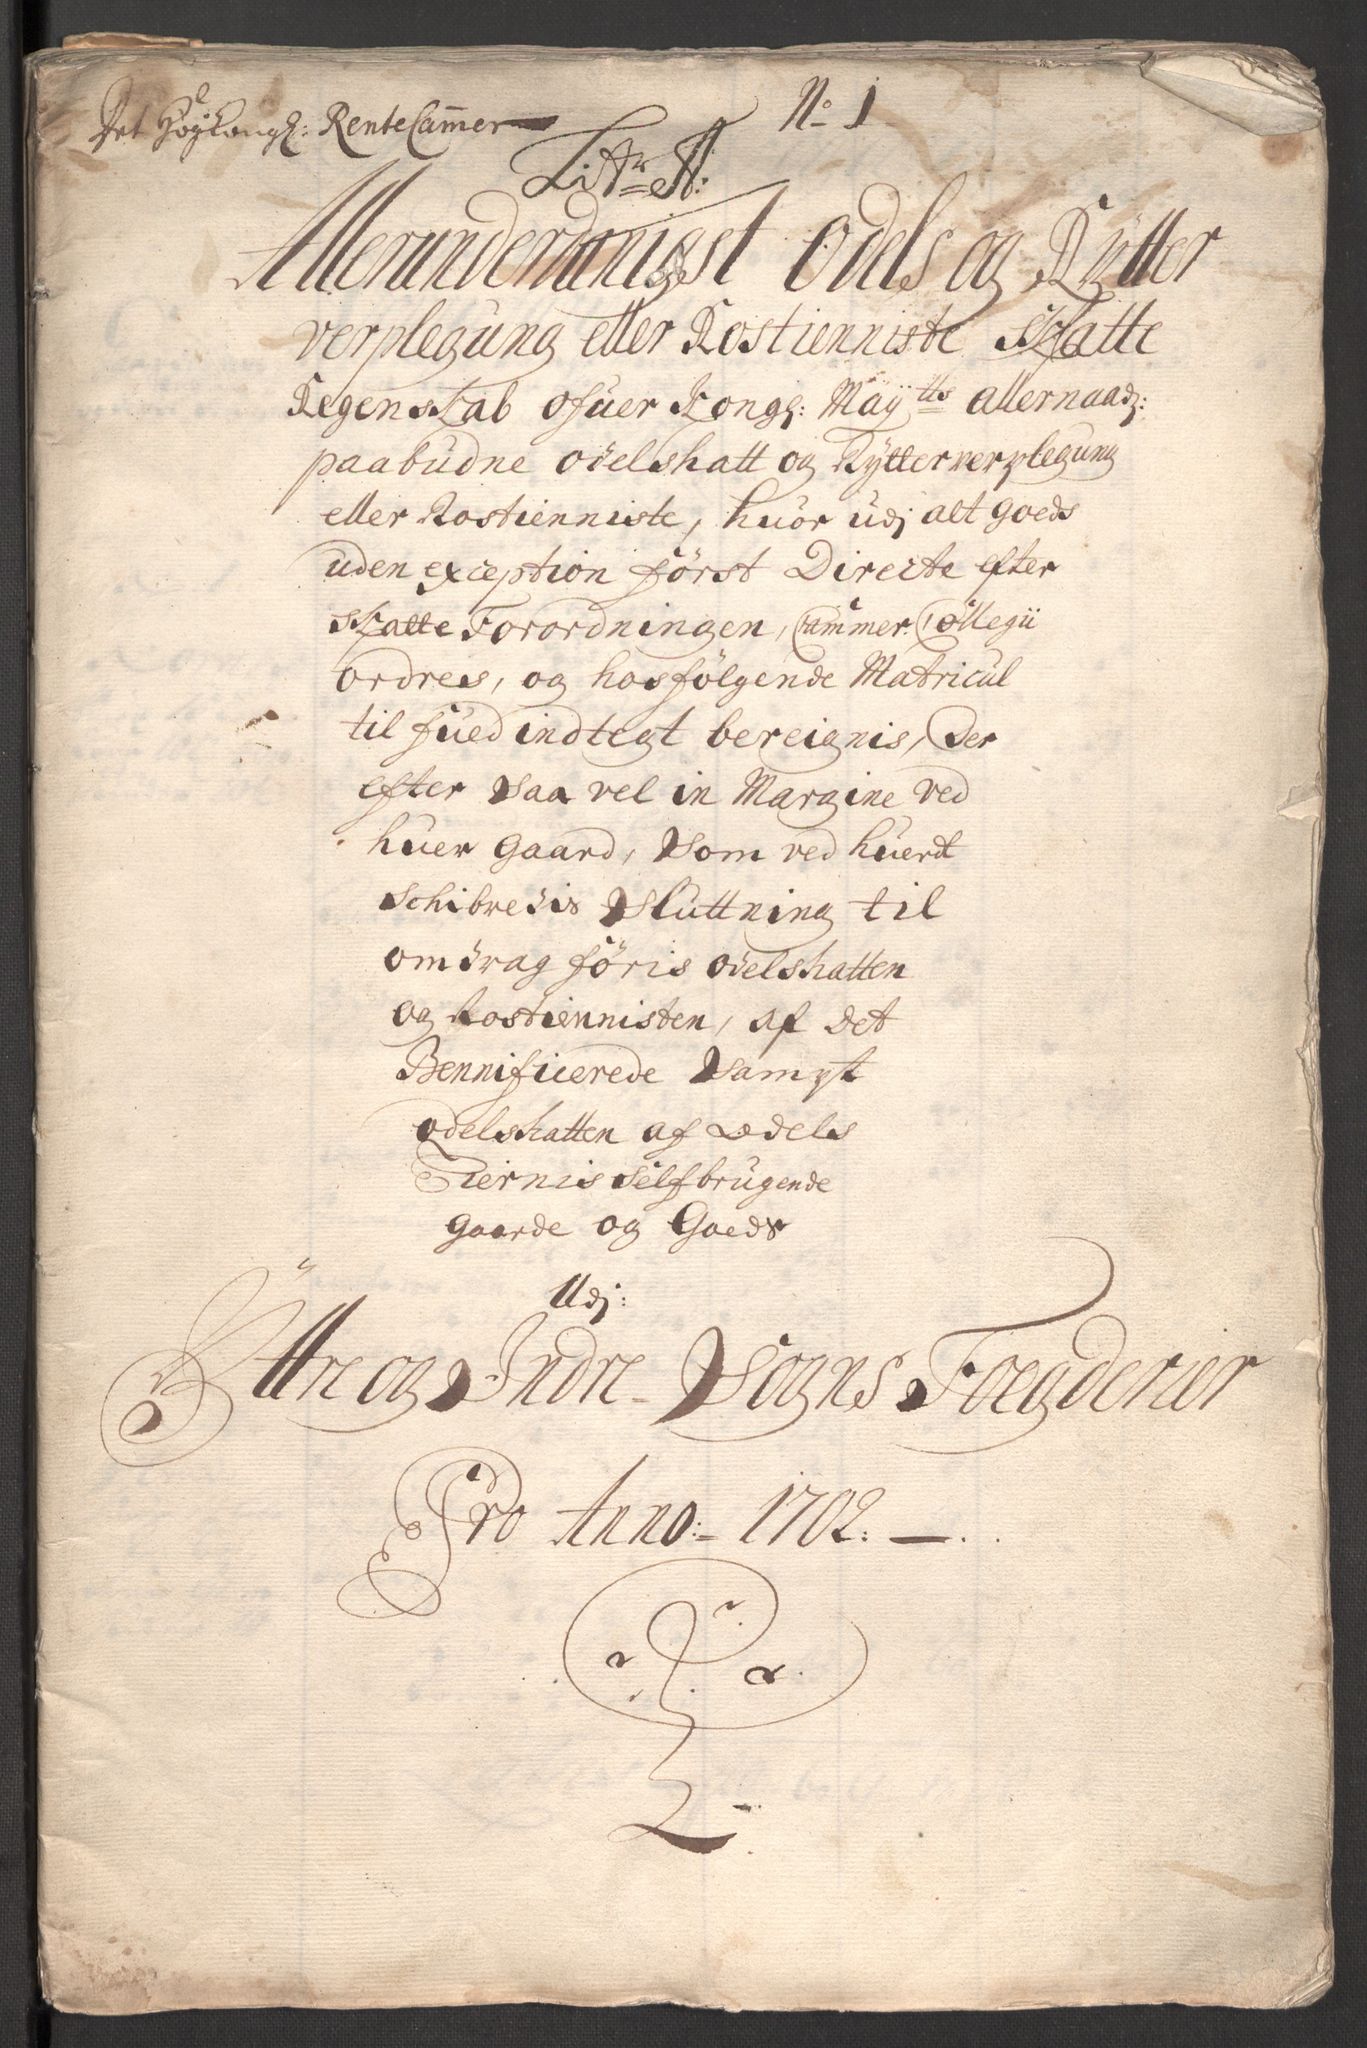 Det Høÿkongl: RenteCam̄er
No 1
Litr A:
Allerunderdanigst Odels og Rÿtter
verplegung eller Rostienniste Skatte
Regenskab ofuer Kongl: Maÿtts allernaad:
paabudne odelshatt og Rÿtterverplegung
eller Rostienniste, huor udj alt goeds
uden exception först Directe efter
skatte Forordningen, Cammer Collegii
ordres, og hosfölgende Matricul
til fued indtegt bereignis, Der
efter saa vel in Margine ved
huer gaard, som ved huerdt
schibredis sluttning til
omdrag föris odelshatten
og Rostiennisten, af det
Bennificerede sampt
odelshatten af odels
Eiernis selfbrugende
gaarde og Goeds
Udj:
Ÿttre og Indre Sogns Foegderier
Pro Anno 1702.